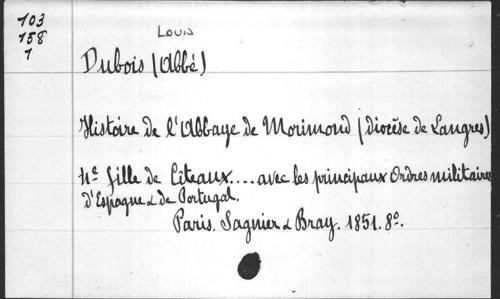 103
158
1
LOUIS
Dubois (Abbé)
Histoire de l'Abbaye de Morimond (diocèse de Langres)
4e fille de Citeaux.... avec les principaux Ordres militaires
d'Espagne & de Portugal.
Paris. Sagnier & Bray. 1851. 8o.